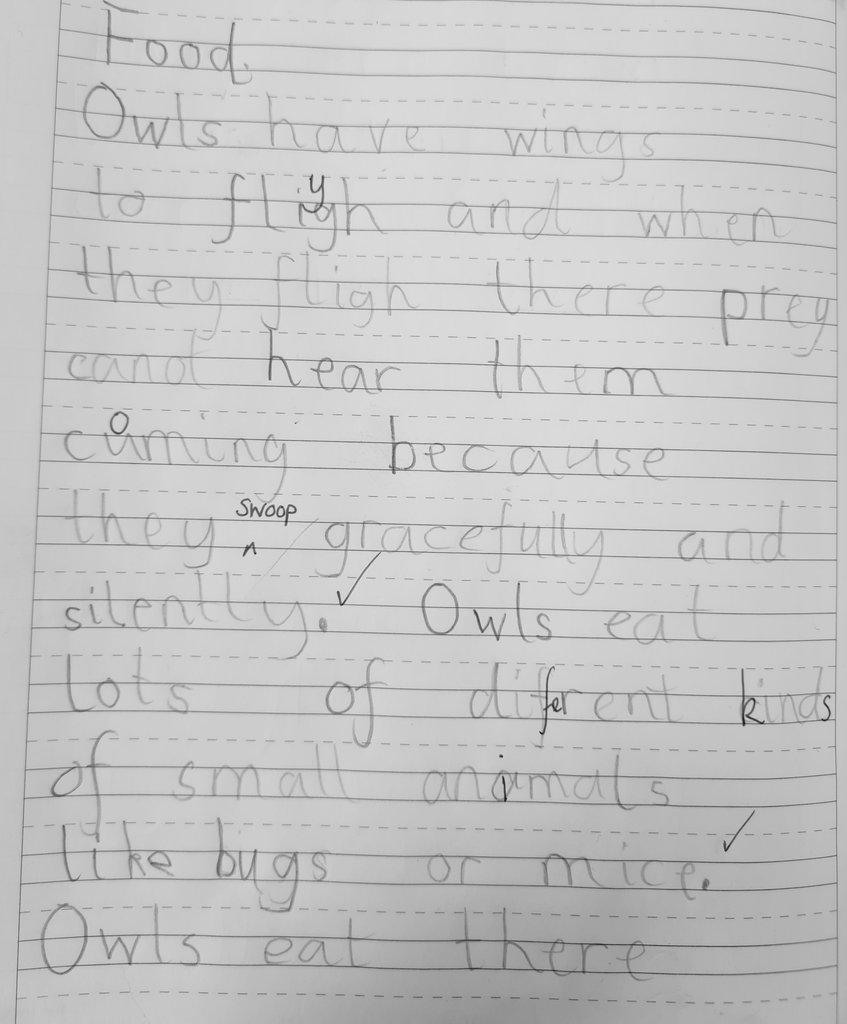 Food.
Owls have wings
to fligh and when
they fligh there prey
canot hear them
coming because
they swoop gracefully and
silentlly. Owls eat
lots of diferent kinds
of small animals
like bugs or mice.
Owls eat there